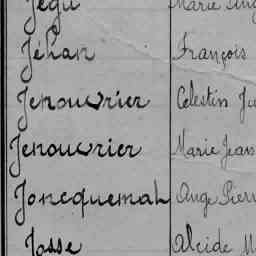 Jégu Marie
Jéhan François
Jenouvrier Celestin
Jenouvrier Marie Jean
Joncquemah Ange Pierr
Josse Alcide M